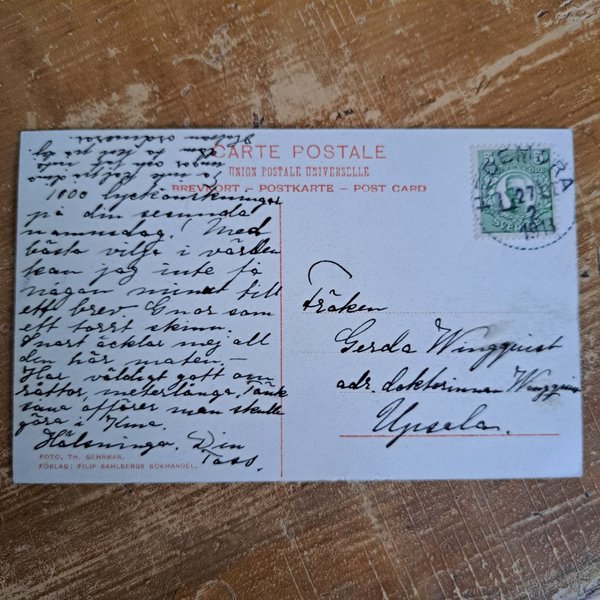 CARTE POSTALE
UNION POSTALE UNIVERSELLE
BREVKORT – POSTKARTE – POST CARD
HEDEMORA
27
2
1911
1000 lyckönskningar
på din sesunda
namnsdag! Med
bästa vilja i världen
kan jag inte få
någon minut till
ett brev. Gnor som
ett torrt skinn.
Snart äcklar mej all
den här maten. –
Har väldigt gott om
råttor, meterlånga. Tänk
sana affärer man skulle
göra i Kina.
Hälsningar. Din
Tass.
Fröken
Gerda Wingquist
adr. doktorinnan Wingquist
Upsala.
FOTO. TH. GEHRMAN.
FÖRLAG: FILIP SAHLBERGS BOKHANDEL.